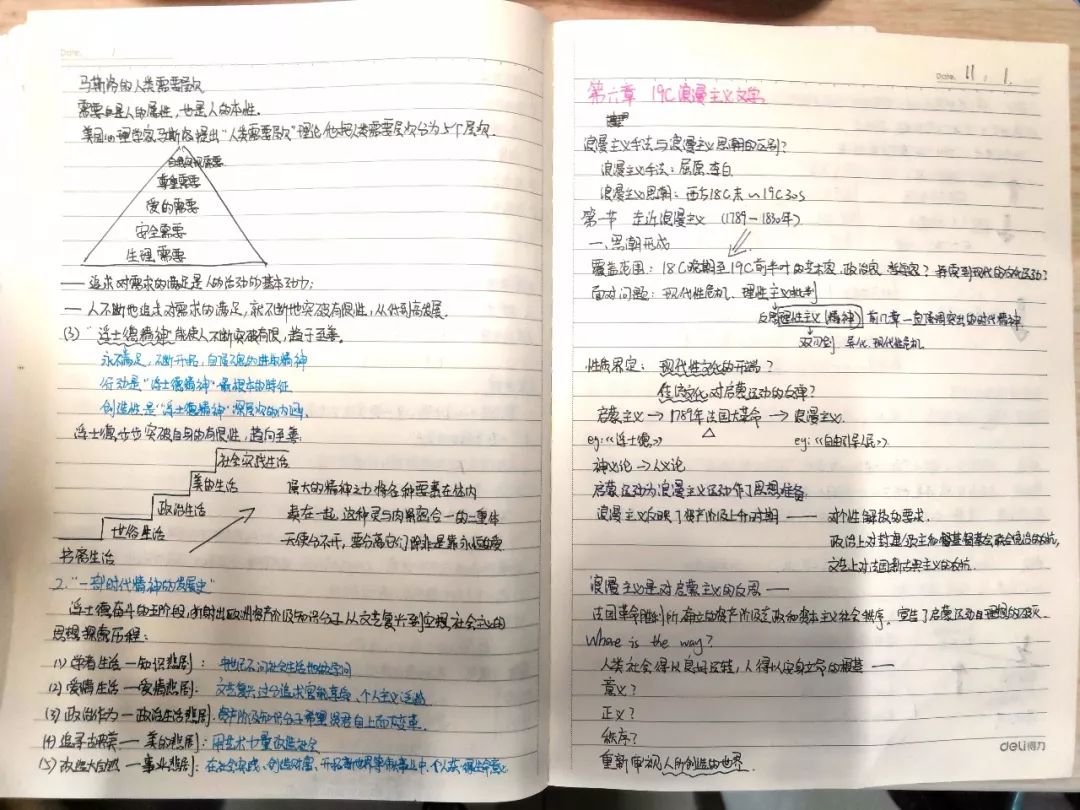 Date. 1
马斯洛的人类需要层次
需要自是人的属性，也是人的本性。
美国心理学家马斯洛提出“人类需要层次”理论，他把人类需要层次分为5个层次
自我实现需要
尊重需要
爱的需要
安全需要
生理需要
—— 追求对需求的满足是人的活动的基本动力；
—— 人不断地追求对需求的满足，就不断地突破有限性，从低到高发展.
(3) “浮士德精神”能使人不断突破有限，趋于至善。
永不满足，不断开拓，自强不息的进取精神
行动是“浮士德精神”最根本的特征
创造性是“浮士德精神”深层次的内涵.
浮士德步步突破自身的有限性，趋向至善.
社会实践生活
美的生活
政治生活
世俗生活
书斋生活
强大的精神之力将各种要素在体内
集在一起，这种灵与肉紧密合一的二重体
天使分不开，要分离它们除非是靠永恒的爱
2. “一部时代精神的发展史”
浮士德奋斗的五阶段，折射出欧洲资产阶级知识分子从文艺复兴到空想社会主义的
思想探索历程：
(1) 学者生活 — 知识悲剧：
(2) 爱情生活 — 爱情悲剧： 文艺复兴，过分追求官能享受、个人主义泛滥
(3) 政治作为 — 政治生活悲剧. 资产阶级知识分子希望设君自上而下变革.
(4) 追寻古典美 — 美的悲剧： 用艺术力量改造社会
(5) 改造大自然 — 事业悲剧： 在社会实践、创造财富、开拓新世界等事业中，个人获得生命意义
Date. 11. 1.
第六章 19C浪漫主义文学
浪漫主义手法与浪漫主义思潮的区别？
浪漫主义手法：屈原 李白
浪漫主义思潮：西方18C末 ~ 19C30s
第一节 走近浪漫主义 (1789—1830年)
一、思潮形成
覆盖范围： 18C晚期至19C前半叶的艺术家、政治家、哲学家？ 持续到现代的文化运动？
面对问题： 现代性危机、理性主义批判
反思理性主义(精神) 前几章一直强调突出的时代精神
双刃剑 异化、现代性危机
性质界定： 现代性文化的开端？
传统文化对启蒙运动的反弹？
启蒙主义 → 1789年法国大革命 → 浪漫主义.
eg：《浮士德》 △ eg：《自由引导人民》
神义论 → 人义论
启蒙运动为浪漫主义运动作了思想准备
浪漫主义反映了资产阶级上升时期 —— 对个性解放的要求.
政治上对封建领主和基督教会联合统治的反抗，
文艺上对法国新古典主义的反抗.
浪漫主义是对启蒙主义的反思 ——
法国革命胜利所确立的资产阶级专政和资本主义社会秩序，宣告了启蒙运动自理想的破灭
Where is the way?
人类社会得以良间运转，人得以安身立命的根基 ——
意义？
正义？
秩序？
重新审视人所创造的世界.
deli得力